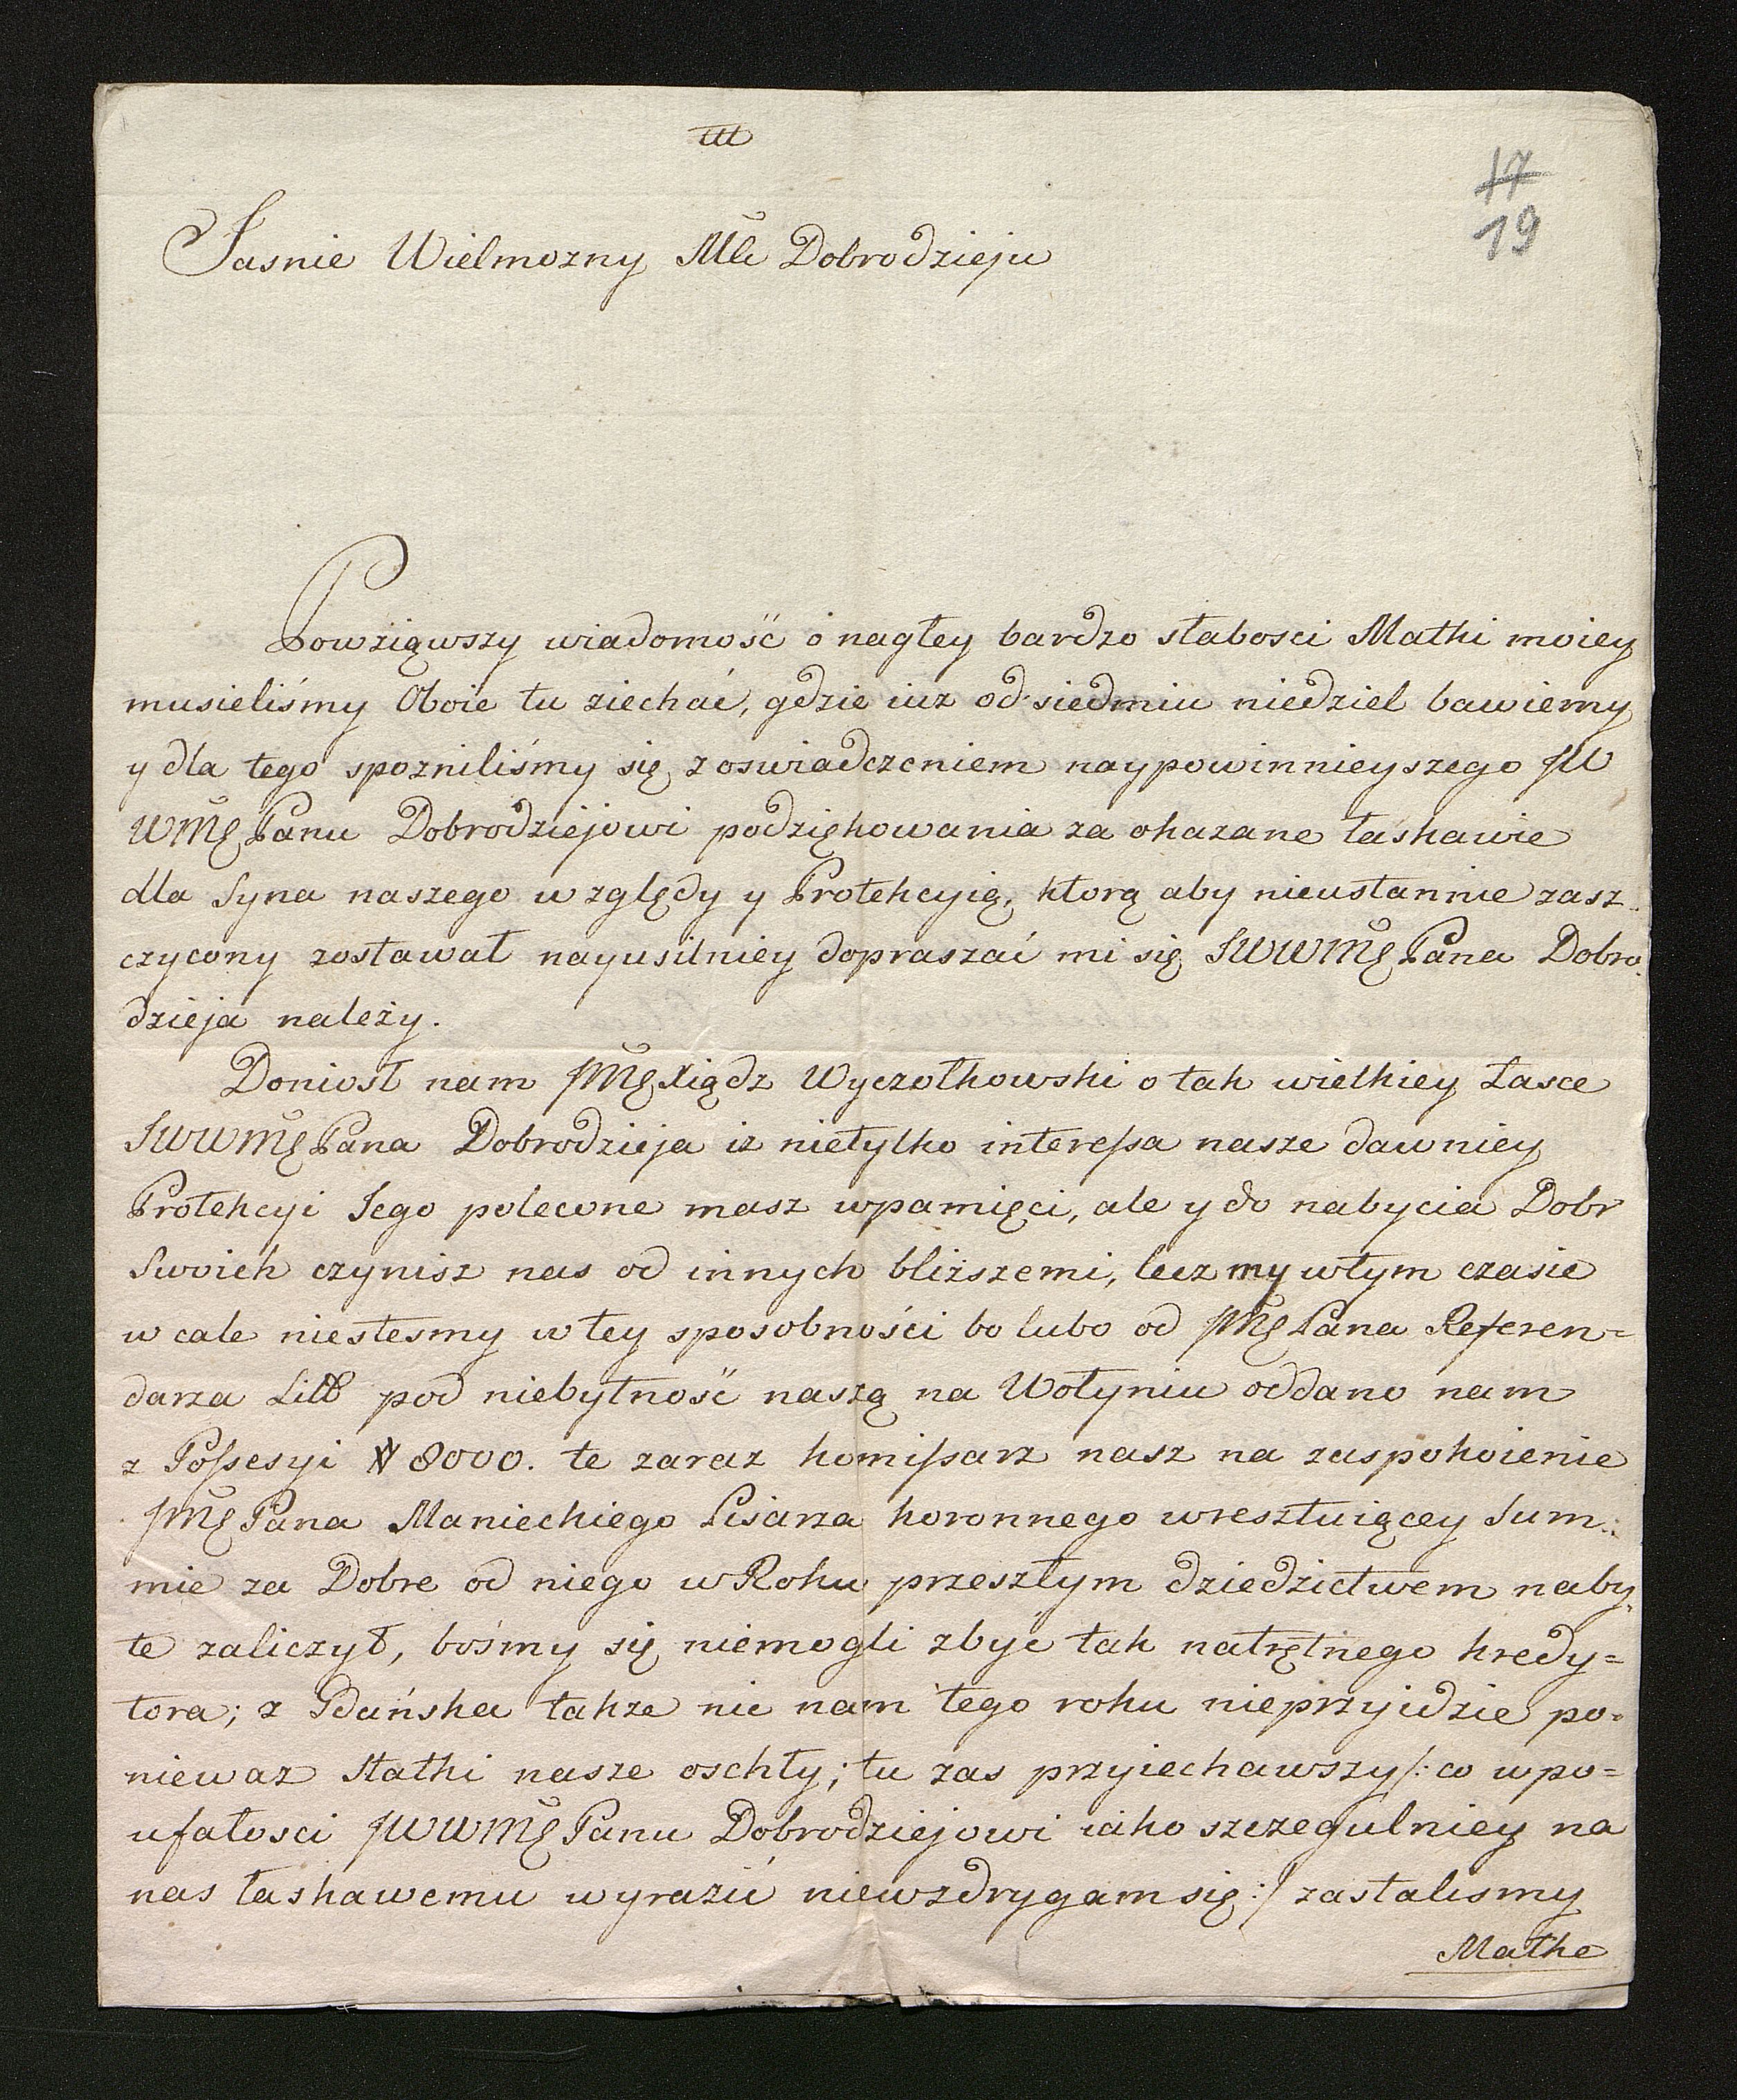 17
19
Jasnie Wielmozny Mci Dobrodzieju
Powziąwszy wiadomość o nagłey bardzo słabosci Matki moiey
musieliśmy Oboie tu ziechać, gdzie iuz od siedmiu niedziel bawiemy
y dla tego spozniliśmy się z oswiadczeniem naypowinnieyszego JW
WMę Panu Dobrodziejowi podziękowania za okazane łaskawie
dla Syna naszego względy y Protekcyią, ktorą aby nieustannie zasz-
czycony zostawał nayusilniey dopraszać mi się JWWMę Pana Dobro-
dzieja należy.
Doniosł nam JMę Xiądz Wyczołkowski o tak wielkiey Łasce
JWWMę Pana Dobrodzieja iz nietylko interessa nasze dawniey
Protekcyi Jego polecone masz w pamięci, ale y do nabycia Dobr
Swoich czynisz nas od innych bliższemi, lecz my w tym czasie
w cale niestesmy w tey sposobności bo lubo od JMę Pana Referen=
darza Litt pod niebytność naszą na Wołyniu oddano nam
z Possesyi # 8000. te zaraz komissarz nasz na zaspokoienie
JMę Pana Manieckiego Pisarza koronnego w resztuiącey Sum-
mie za Dobre od niego w Roku przeszłym dziedzictwem naby-
te zaliczył, bośmy się niemogli zbyć tak natrętnego kredy=
tora; z Gdańska takze nic nam tego roku nieprzyidzie po=
niewaz Statki nasze oschły; tu zas przyiechawszy /: co w po=
ufałosci JWWMę Panu Dobrodziejowi iako szczegulniey na
nas łaskawemu wyrazić niewzdrygam się :/ zastalismy
Matke